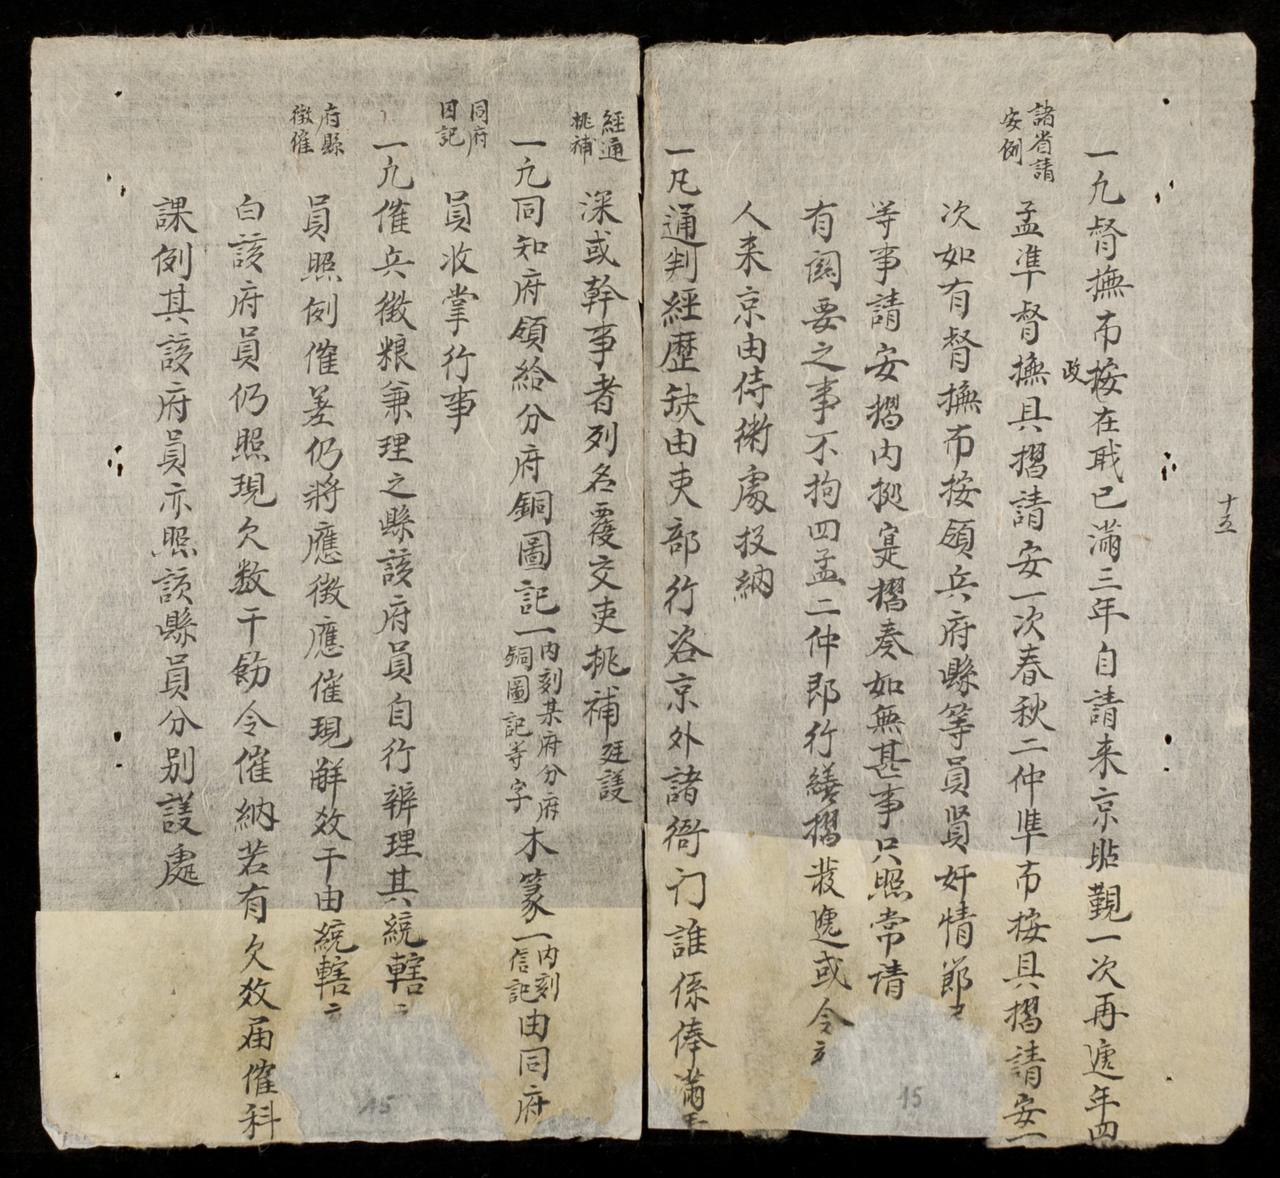 十五
一凢督撫布按在職已滿三年自請来京貼覲一次再遞年四
政
諸省請
安例
孟準督撫具摺請安一次春秋二仲準布按具摺請安一
次如有督撫布按領兵府縣等員賢奸情節
等事請安摺内挻寔摺奏如無甚事只照常请
有関要之事不拘四孟二仲即行繕摺發遞或令
人来京由侍衛處投納
一凡通判經歷缺由吏部行咨京外諸衙门誰係俸滿
經通
桃補
深或幹事者列名覆交吏桃補廷議
一凢同知府領給分府銅圖記一内刻某府分府銅圖記等字木篆一内刻信記由同府
同府
因記
員收掌行事
一凢催兵徵粮兼理之縣該府員自行辨理其統轄
府縣
徵催
員照例催差仍將應徵應催現觧效干由統轄
白該府員仍照現欠数干飭令催納若有欠效届催科
課例其該府員亦照該縣員分别議處
15
15